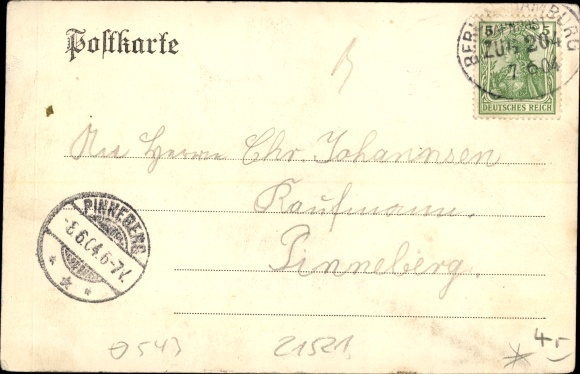 Postkarte
BERLIN HAMBURG
BAHNPOST
ZUG 204
7 6 04
5 5
DEUTSCHES REICH
Herrn Chr. Johannsen
Kaufmann.
Pinneberg.
PINNEBERG
-8.6.04.6-7V.
* * *
21521
4,-